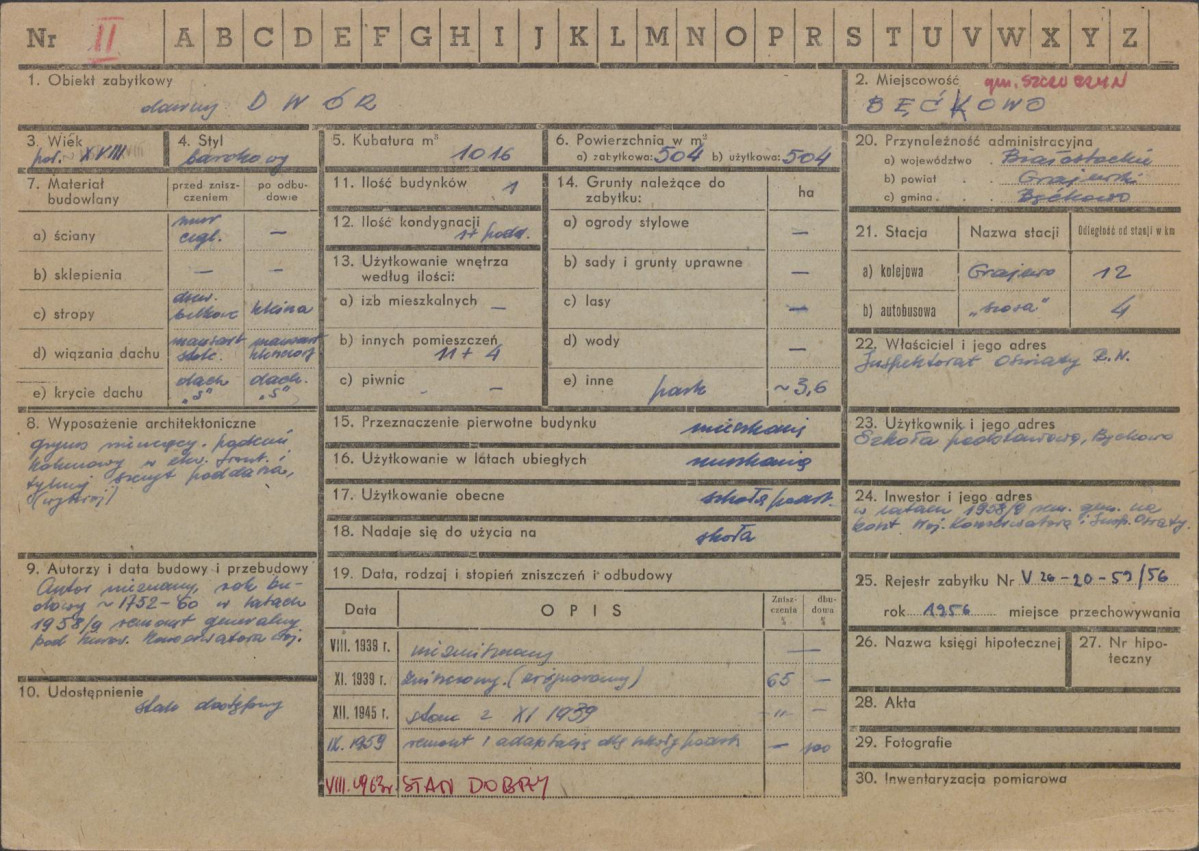 Nr II A B C D E F G H I J K L M N O P R S T U V W X Y Z
1. Obiekt zabytkowy
dawny DWÓR
2. Miejscowość gm. SZCZUCZYN
BĘĆKOWO
3. Wiek
poł. XVIII
4. Styl
barokowy
5. Kubatura m³
1016
6. Powierzchnia w m²
a) zabytkowa: 504 b) użytkowa: 504
7. Materiał budowlany
przed zniszczeniem
po odbudowie
a) ściany
mur cegl. —
b) sklepienia — —
c) stropy
drew. belkowe
kleina
d) wiązania dachu
mansart stolc.
mansart
e) krycie dachu
dach. „S"
dach. „S"
8. Wyposażenie architektoniczne
gzyms wieńczący.
kolumnowy w elew. front. i
tylnej szczyt poddasza,
9. Autorzy i data budowy i przebudowy
Autor nieznany, rok bu-
dowy ~ 1752-60 w latach
1958/9 remont generalny
pod kierow. Konserwatora Woj.
10. Udostępnienie
stale dostępny
11. Ilość budynków 1
12. Ilość kondygnacji
1 + podd.
13. Użytkowanie wnętrza według ilości:
a) izb mieszkalnych —
b) innych pomieszczeń
11 + 4
c) piwnic —
14. Grunty należące do zabytku:
ha
a) ogrody stylowe —
b) sady i grunty uprawne —
c) lasy —
d) wody —
e) inne park ~ 3,6
15. Przeznaczenie pierwotne budynku mieszkanie
16. Użytkowanie w latach ubiegłych mieszkanie
17. Użytkowanie obecne szkoła podst.
18. Nadaje się do użycia na szkoła
19. Data, rodzaj i stopień zniszczeń i odbudowy
Data OPIS
Zniszczenia %
dbudowa %
VIII. 1939 r. niezniszczony —
XI. 1939 r. zniszczony. (zrujnowany) 65 —
XII. 1945 r. stan z XI 1939 -"- —
IX. 1959 remont i adaptacja dla szkoły podst. — 100
VIII. 1963r. STAN DOBRY
20. Przynoleżność administracyjna
a) województwo . Białostockie
b) powiat . . Grajewski
c) gmina . . Bęćkowo
21. Stacja
Nazwa stacji
Odległość od stacji w km
a) kolejowa Grajewo 12
b) autobusowa „szosa" 4
22. Właściciel i jego adres
Inspektorat Oświaty P.R.N.
23. Użytkownik i jego adres
Szkoła podstawowa, Bęćkowo
24. Inwestor i jego adres
w latach 1958/9 rem. gen. na
koszt Woj. Konserwatora i Insp. Oświaty.
25. Rejestr zabytku Nr V 26-20-59/56
rok 1956 miejsce przechowywania
26. Nazwa księgi hipotecznej
27. Nr hipo-
teczny
28. Akta
29. Fotografie
30. Inwentaryzacja pomiarowa